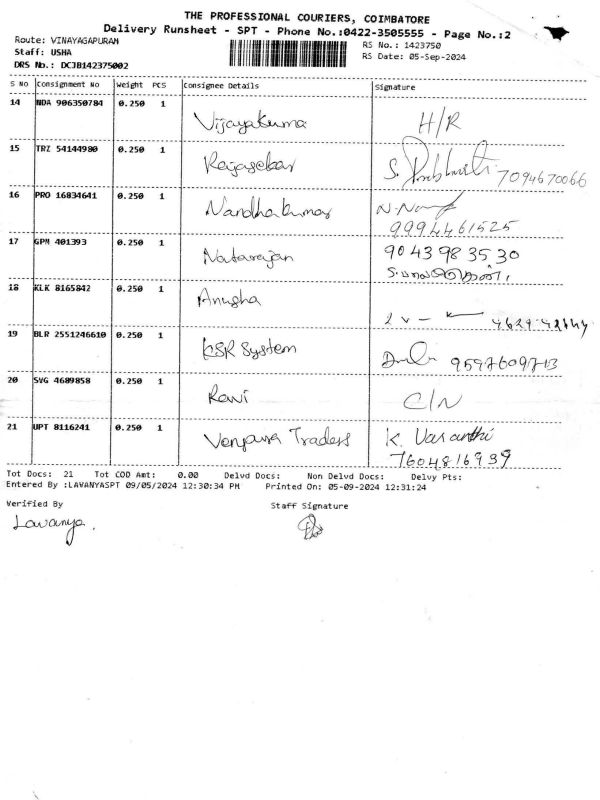 THE PROFESSIONAL COURIERS, COIMBATORE
Delivery Runsheet - SPT - Phone No.:0422-3505555 - Page No.:2
Route: VINAYAGAPURAM
RS No.: 1423750
Staff: USHA
RS Date: 05-Sep-2024
DRS No.: DCJB142375002
S No Consignment No Weight PCS Consignee Details Signature
14 NDA 906350784 0.250 1 Vijayakuma H/R
15 TRZ 54144980 0.250 1 Rajasekar S. Prabhu 7094670066
16 PRO 16834641 0.250 1 Nandhakumar N.Nan
9994461525
17 GPM 401393 0.250 1 Natarajan 9043983530
18 KLK 8165842 0.250 1 Anusha
19 BLR 2551246610 0.250 1 KSR System 9597609713
20 SVG 4689858 0.250 1 Ravi C/N
21 UPT 8116241 0.250 1 Traders K. Vasanthi
7604816939
Tot Docs: 21 Tot COD Amt: 0.00 Delvd Docs: Non Delvd Docs: Delvy Pts:
Entered By :LAVANYASPT 09/05/2024 12:30:34 PM Printed On: 05-09-2024 12:31:24
Verified By Staff Signature
Lavanya.